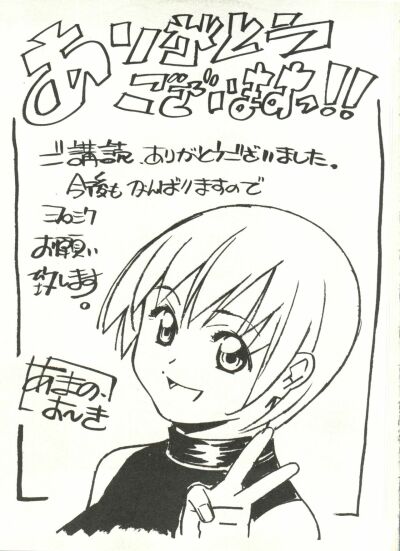 ありがとう
ございまあっす!!
ご講読、ありがとうございました。
今後もがんばりますので
ヨロシク
お願い
致します。
あきの、
お〜き